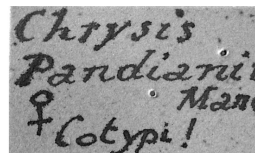 Chrysis
Pandianii
Man
♀ Cotypi!